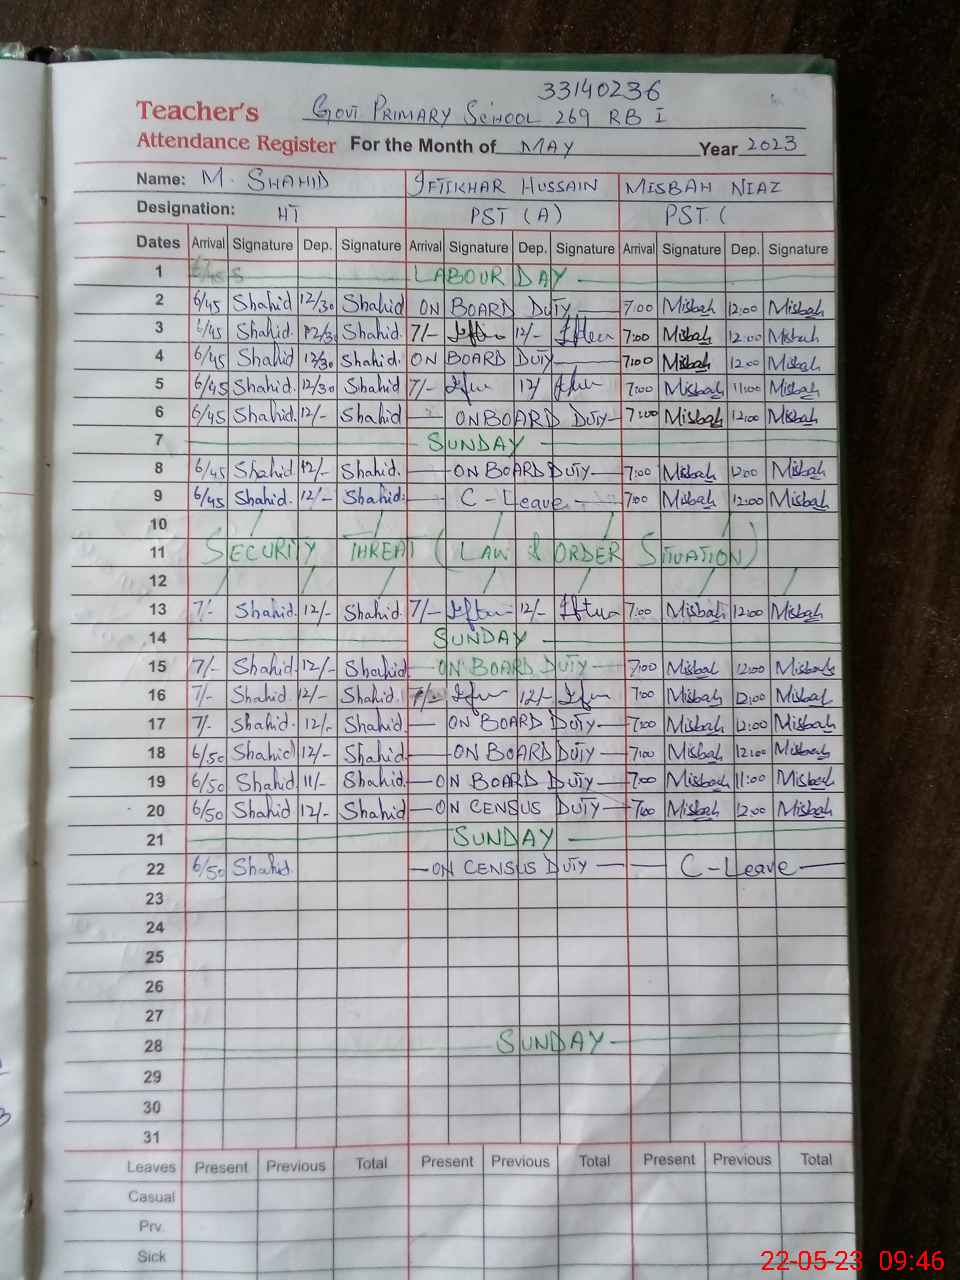 33140236
Teacher's Govt Primary School 269 RB I
Attendance Register For the Month of MAY Year 2023
Name: M. SHAHID IFTIKHAR HUSSAIN MISBAH NIAZ
Designation: HT PST (A) PST (
Dates Arrival Signature Dep. Signature Arrival Signature Dep. Signature Arrival Signature Dep. Signature
1 LABOUR DAY
2 6/45 Shahid 12/30 Shahid ON BOARD DUTY 7:00 Misbah 12:00 Misbah
3 6/45 Shahid. 12/30 Shahid. 7/- 12/- 7:00 Misbah 12:00 Misbah
4 6/45 Shahid 12/30 Shahid. ON BOARD DUTY 7:00 Misbah 12:00 Misbah
5 6/45 Shahid. 12/30 Shahid 7/- 12/ 7:00 Misbah 11:00 Misbah
6 6/45 Shahid. 12/- Shahid ON BOARD DUTY 7:00 Misbah 12:00 Misbah
7 SUNDAY
8 6/45 Shahid 12/- Shahid. ON BOARD DUTY 7:00 Misbah 12:00 Misbah
9 6/45 Shahid. 12/- Shahid. C-Leave 7:00 Misbah 12:00 Misbah
10
11 SECURITY THREAT (LAW & ORDER SITUATION)
12
13 7/- Shahid. 12/- Shahid. 7/- 12/- 7:00 Misbah 12:00 Misbah
14 SUNDAY
15 7/- Shahid. 12/- Shahid ON BOARD DUTY 7:00 Misbah 12:00 Misbah
16 7/- Shahid. 12/- Shahid. 12/- 7:00 Misbah 12:00 Misbah
17 7/- Shahid. 12/- Shahid ON BOARD DUTY 7:00 Misbah 12:00 Misbah
18 6/50 Shahid 12/- Shahid. ON BOARD DUTY 7:00 Misbah 12:00 Misbah
19 6/50 Shahid 11/- Shahid. ON BOARD DUTY 7:00 Misbah 11:00 Misbah
20 6/50 Shahid 12/- Shahid ON CENSUS DUTY 7:00 Misbah 12:00 Misbah
21 SUNDAY
22 6/50 Shahid. ON CENSUS DUTY C-Leave
23
24
25
26
27
28 SUNDAY
29
30
31
Leaves Present Previous Total Present Previous Total Present Previous Total
Casual
Prv.
Sick
22-05-23 09:46